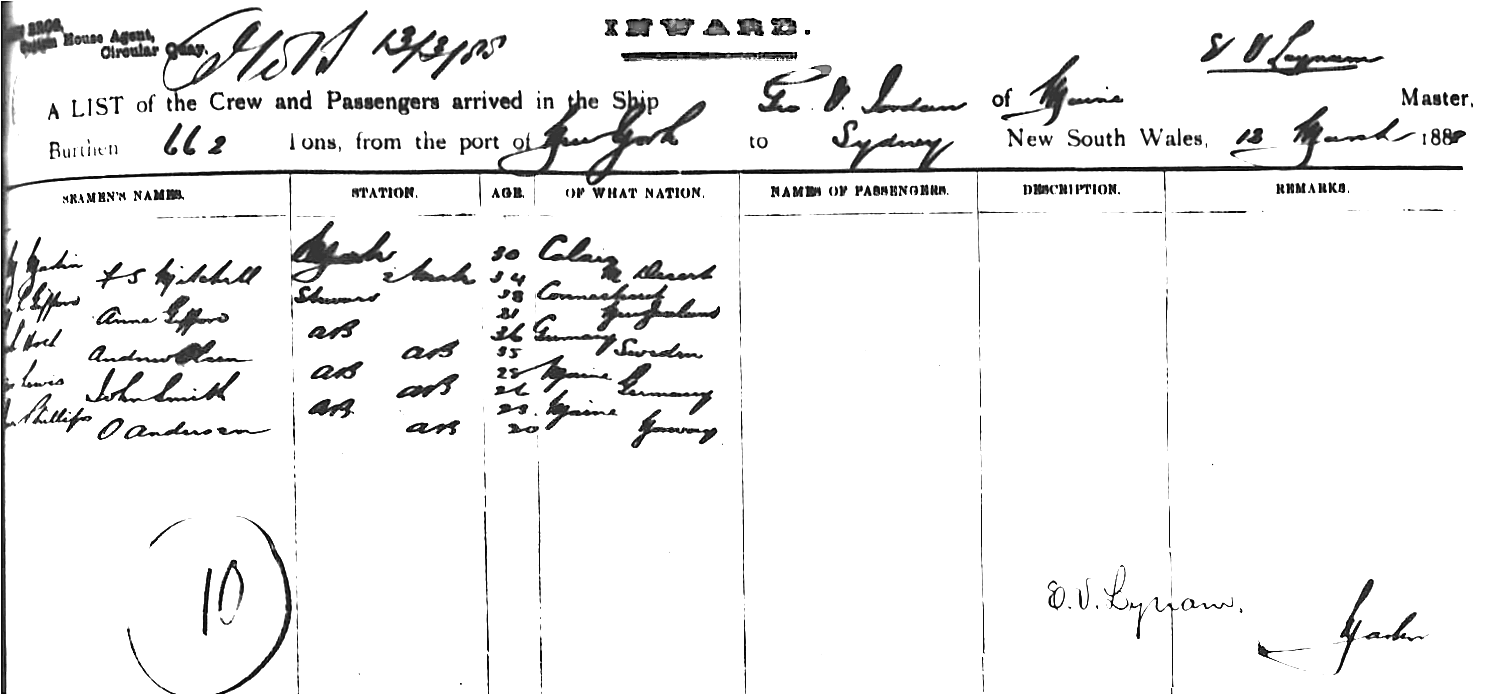 BROS,
House Agent,
Circular Quay.
13/3/88
INWARD.
E V Lynam
A LIST of the Crew and Passengers arrived in the Ship Geo. V. Jordan of Maine Master,
Burthen 662 Tons, from the port of New York to Sydney New South Wales, 12 March 1888
SEAMEN'S NAMES. STATION. AGE. OF WHAT NATION. NAMES OF PASSENGERS. DESCRIPTION. REMARKS.
30 Calais
F S Mitchell 2 Mate 34 Mt Desert
Gifford Steward 38 Connecticut
Anna Gifford 31 New Zealand
AB 36 Germany
Andrew Olsen AB 35 Sweden
Lewis AB 25 Maine
John Smith AB 26 Germany
Phillips AB 23. Maine
O Andersen AB 20 Norway
10
E. V. Lynam.
Master